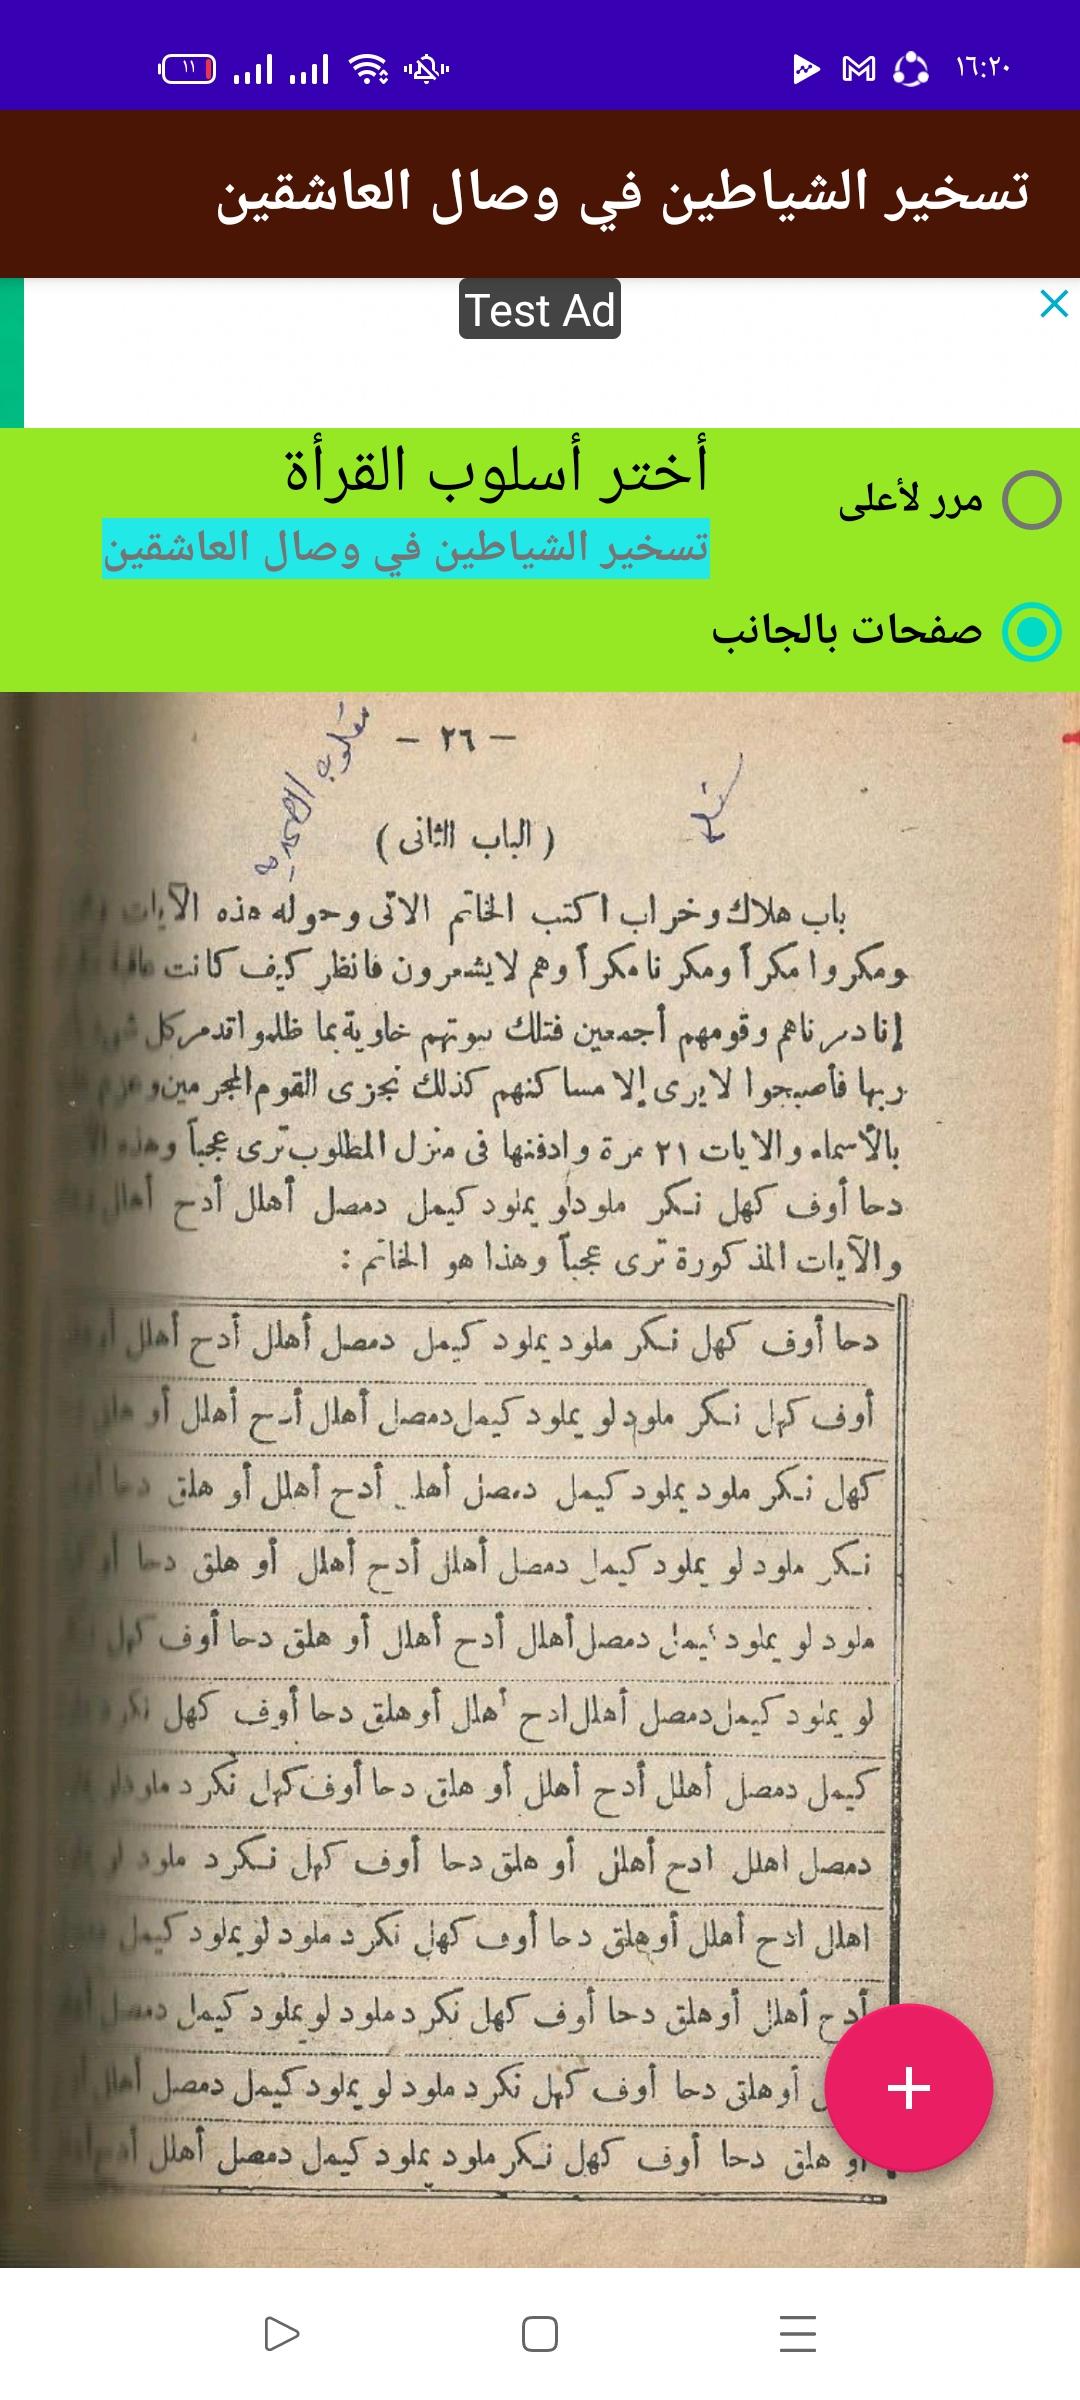 ١٦:٢٠
١١
تسخير الشياطين في وصال العاشقين
Test Ad
أختر أسلوب القرأة
مرر لأعلى
تسخير الشياطين في وصال العاشقين
صفحات بالجانب
— ٢٦ —
( الباب الثانى )
باب هلاك وخراب اكتب الخاتم الاتى وحوله هذه الآيات
ومكروا مكراً ومكرنا مكراً وهم لا يشعرون فانظر كيف كانت
إنا دمرناهم وقومهم أجمعين فتلك بيوتهم خاوية بما ظلموا تدمر كل
ربها فأصبحوا لا يرى إلا مساكنهم كذلك نجزى القوم المجرمين
بالأسماء والايات ٢١ مرة وادفنها فى منزل المطلوب ترى عجباً وهذه
دحا أوف كهل نكر ملودلو يملود كيمل دمصل أهلل أدح أهلل
والآيات المذكورة ترى عجباً وهذا هو الخاتم :
دحا أوف كهل نكر ملود يملود كيمل دمصل أهلل أدح أهلل
أوف كهل نكر ملود لو يملود كيمل دمصل أهلل أدح أهلل أو
كهل نكر ملود يملود كيمل دمصل أهلل أدح أهلل أو هلق دحا
نكر ملود لو يملود كيمل دمصل أهلل أدح أهلل أو هلق دحا
ملود لو يملود كيمل دمصل أهلل أدح أهلل أو هلق دحا أوف كهل
لو يملود كيمل دمصل أهلل ادح أهلل أو هلق دحا أوف كهل نكر
كيمل دمصل أهلل أدح أهلل أو هلق دحا أوف كهل نكر د
دمصل اهلل ادح أهلل أو هلق دحا أوف كهل نكر د ملود
اهلل ادح أهلل أو هلق دحا أوف كهل نكر د ملود لو يملود كيمل
أدح أهلل أو هلق دحا أوف كهل نكر د ملود لو يملود كيمل دمصل
أو هلق دحا أوف كهل نكر د ملود لو يملود كيمل دمصل أهلل
أو هلق دحا أوف كهل نكر ملود يملود كيمل دمصل أهلل